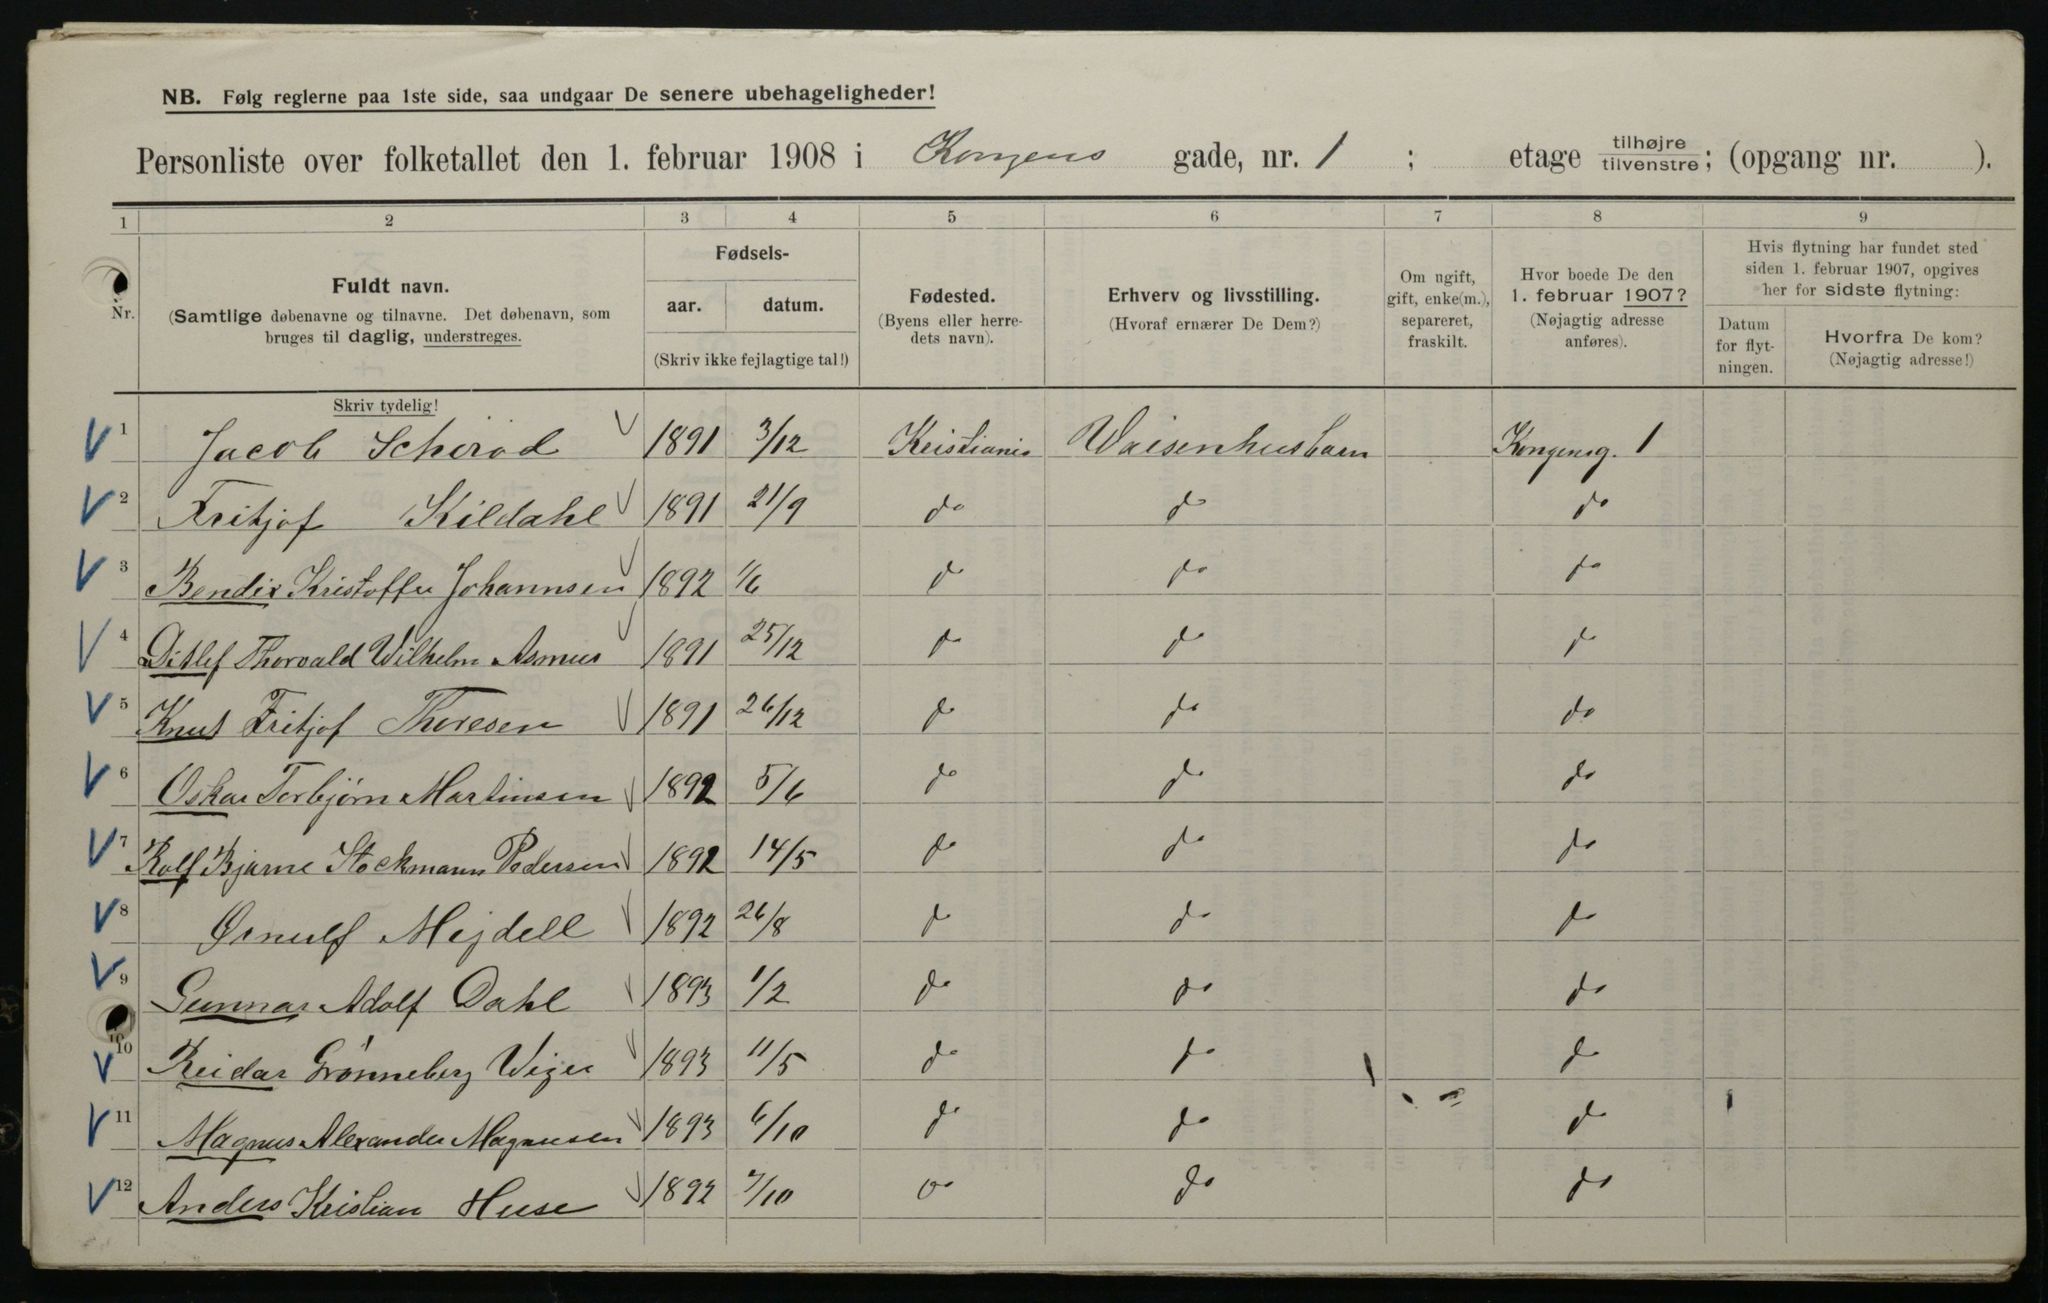 NB. Følg reglerne paa 1ste side, saa undgaar De senere ubehageligheder!
Personliste over folketallet den 1. februar 1908 i Kongens gade, nr. 1 ; etage tilhøjre tilvenstre; (opgang nr. ).
1 2 3 4 5 6 7 8 9
Nr.
Fuldt navn.
(Samtlige døbenavne og tilnavne. Det døbenavn, som
bruges til daglig, understreges.
Skriv tydelig!
Fødsels-
aar. datum.
(Skriv ikke fejlagtige tal!)
Fødested.
(Byens eller herre-
dets navn).
Erhverv og livsstilling.
(Hvoraf ernærer De Dem?)
Om ugift,
gift, enke(m.),
separeret,
fraskilt.
Hvor boede De den
1. februar 1907?
(Nøjagtig adresse
anføres).
Hvis flytning har fundet sted
siden 1. februar 1907, opgives
her for sidste flytning:
Datum
for flyt-
ningen.
Hvorfra De kom?
(Nøjagtig adresse!)
1 Jacob 1891 3/12 Kristiania Waisenhusbarn Kongensg. 1
2 Fritjof Kildahl 1891 21/9 do do do
3 Bendix Kristoffer Johannsen 1892 1/6 do do do
4 Ditlef Thorvald Wilhelm Asmus 1891 25/12 do do do
5 Knut Fritjof Thoresen 1891 26/12 do do do
6 Oskar Torbjørn Martinsen 1892 5/6 do do do
7 Rolf Bjarne Stockmann Pedersen 1892 14/5 do do do
8 Ørnulf Mejdell 1892 26/8 do do do
9 Gunnar Adolf Dahl 1893 1/2 do do do
10 Reidar Grønneberg 1893 11/5 do do do
11 Magnus Alexander Magnusen 1893 6/10 do do do
12 Anders Kristian Huse 1892 7/10 do do do